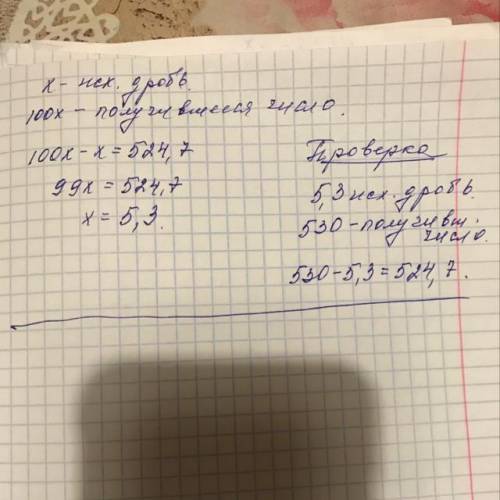 х - исх. дробь.
100х - получившееся число.
100х - х = 524,7
99х = 524,7
х = 5,3.
Проверка
5,3 исх. дробь.
530 - получивш.
число.
530 - 5,3 = 524,7.